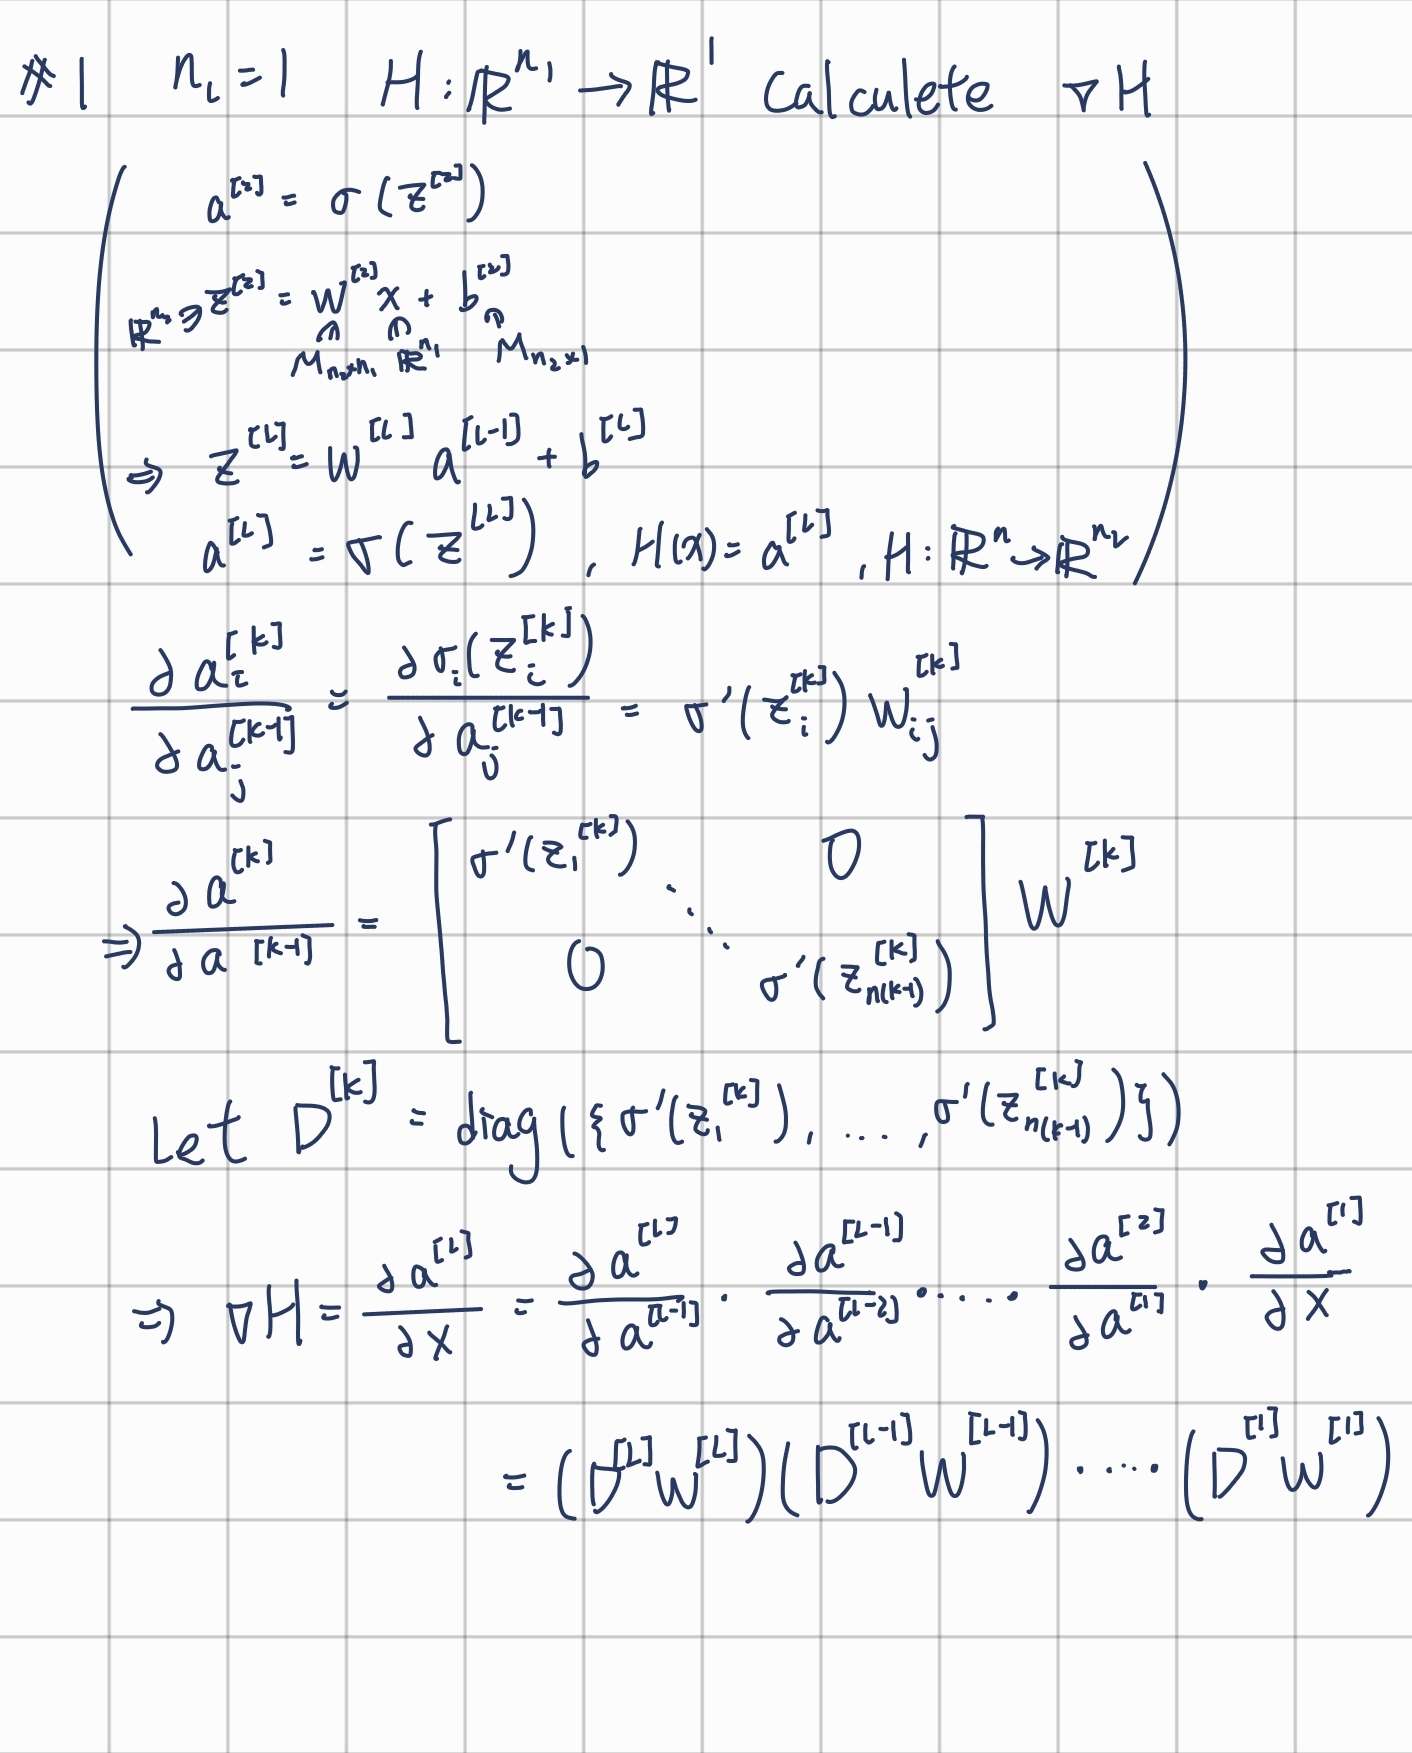 #1 n_L = 1 H : ℝ^{n_1} → ℝ^1 Calculete ∇H
a^{[2]} = σ(z^{[2]})
ℝ^{n_2} ∋ z^{[2]} = W^{[2]} x + b^{[2]}
M_{n_2×n_1} ℝ^{n_1} M_{n_2×1}
⇒ z^{[L]} = W^{[L]} a^{[L-1]} + b^{[L]}
a^{[L]} = σ(z^{[L]}), H(x) = a^{[L]}, H : ℝ^n → ℝ^{n_L}
∂a_i^{[k]} / ∂a_j^{[k-1]} = ∂σ_i(z_i^{[k]}) / ∂a_j^{[k-1]} = σ'(z_i^{[k]}) W_{ij}^{[k]}
⇒ ∂a^{[k]} / ∂a^{[k-1]} = [σ'(z_1^{[k]}) ⋱ 0 0 σ'(z_{n(k-1)}^{[k]})] W^{[k]}
Let D^{[k]} = diag({σ'(z_1^{[k]}), ...., σ'(z_{n(k-1)}^{[k]})})
⇒ ∇H = ∂a^{[L]} / ∂x = ∂a^{[L]} / ∂a^{[L-1]} · ∂a^{[L-1]} / ∂a^{[L-2]} · .... · ∂a^{[2]} / ∂a^{[1]} · ∂a^{[1]} / ∂x
= (D^{[L]} W^{[L]})(D^{[L-1]} W^{[L-1]}) · .... · (D^{[1]} W^{[1]})